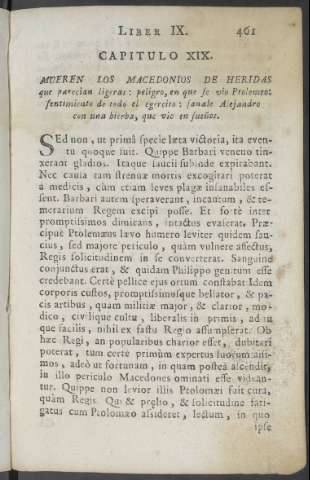 LIBER IX. 461
CAPITULO XIX.
MUEREN LOS MACEDONIOS DE HERIDAS
que parecian ligeras: peligro, en que se vio Ptolemeo:
sentimiento de todo el egercito: sanale Alejandro
con una hierba, que vio en sueños.
SEd non, ut primâ specie læta victoria, ita even-
tu quoque fuit. Quippe Barbari veneno tin-
xerant gladios. Itaque saucii subinde expirabant.
Nec causa tam strenuæ mortis excogitari poterat
a medicis, cùm etiam leves plagæ insanabiles es-
sent. Barbari autem speraverant, incautum, & te-
merarium Regem excipi posse. Et fortè inter
promptissimos dimicans, intactus evaserat. Præ-
cipuè Ptolemæus lævo humero leviter quidem sau-
cius, sed majore periculo, quàm vulnere affectus,
Regis solicitudinem in se converterat. Sanguine
conjunctus erat, & quidam Philippo genitum esse
credebant. Certè pellice ejus ortum constabat. Idem
corporis custos, promptissimusque bellator, & pa-
cis artibus, quam militiæ major, & clarior, mo-
dico, civilique cultu, liberalis in primis, aditu-
que facilis, nihil ex fastu Regio assumpserat. Ob
hæc Regi, an popularibus charior esset, dubitari
poterat, tum certè primùm expertus suorum ani-
mos, adeò ut fortunam, in quam postea ascendit,
in illo periculo Macedones ominati esse videan-
tur. Quippe non levior illis Ptolomæi fuit cura,
quàm Regis. Qui & prælio, & solicitudine fati-
gatus cum Ptolomæo assideret, lectum, in quo
ipse